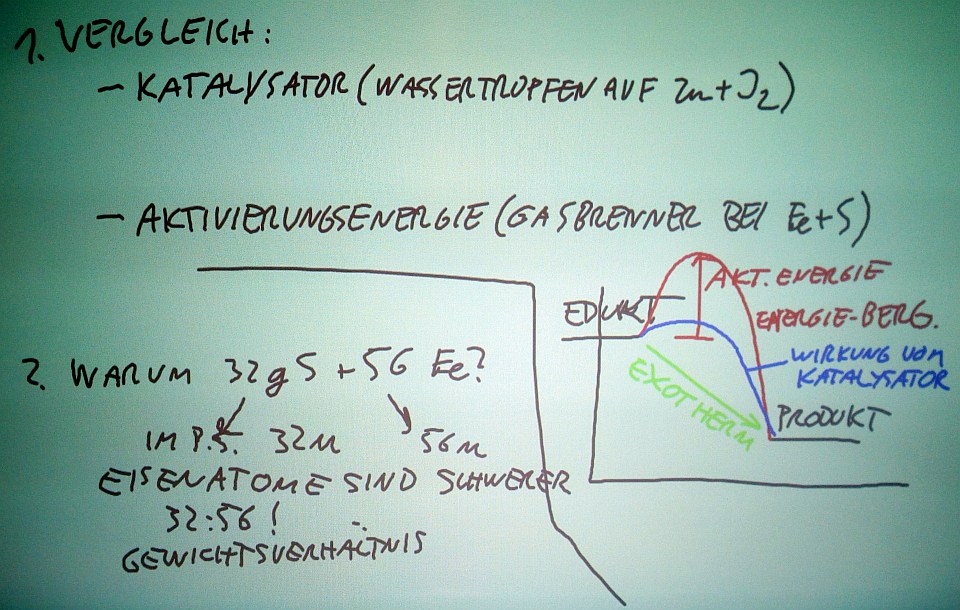 1. VERGLEICH:
– KATALYSATOR (WASSERTROPFEN AUF Zn + J2)
– AKTIVIERUNGSENERGIE (GASBRENNER BEI Fe + S)
EDUKT
AKT. ENERGIE
ENERGIE-BERG.
WIRKUNG VOM
KATALYSATOR
EXOTHERM
PRODUKT
2. WARUM 32g S + 56 Fe?
IM P.S. 32u 56u
EISENATOME SIND SCHWERER
32:56!
GEWICHTSVERHÄLTNIS